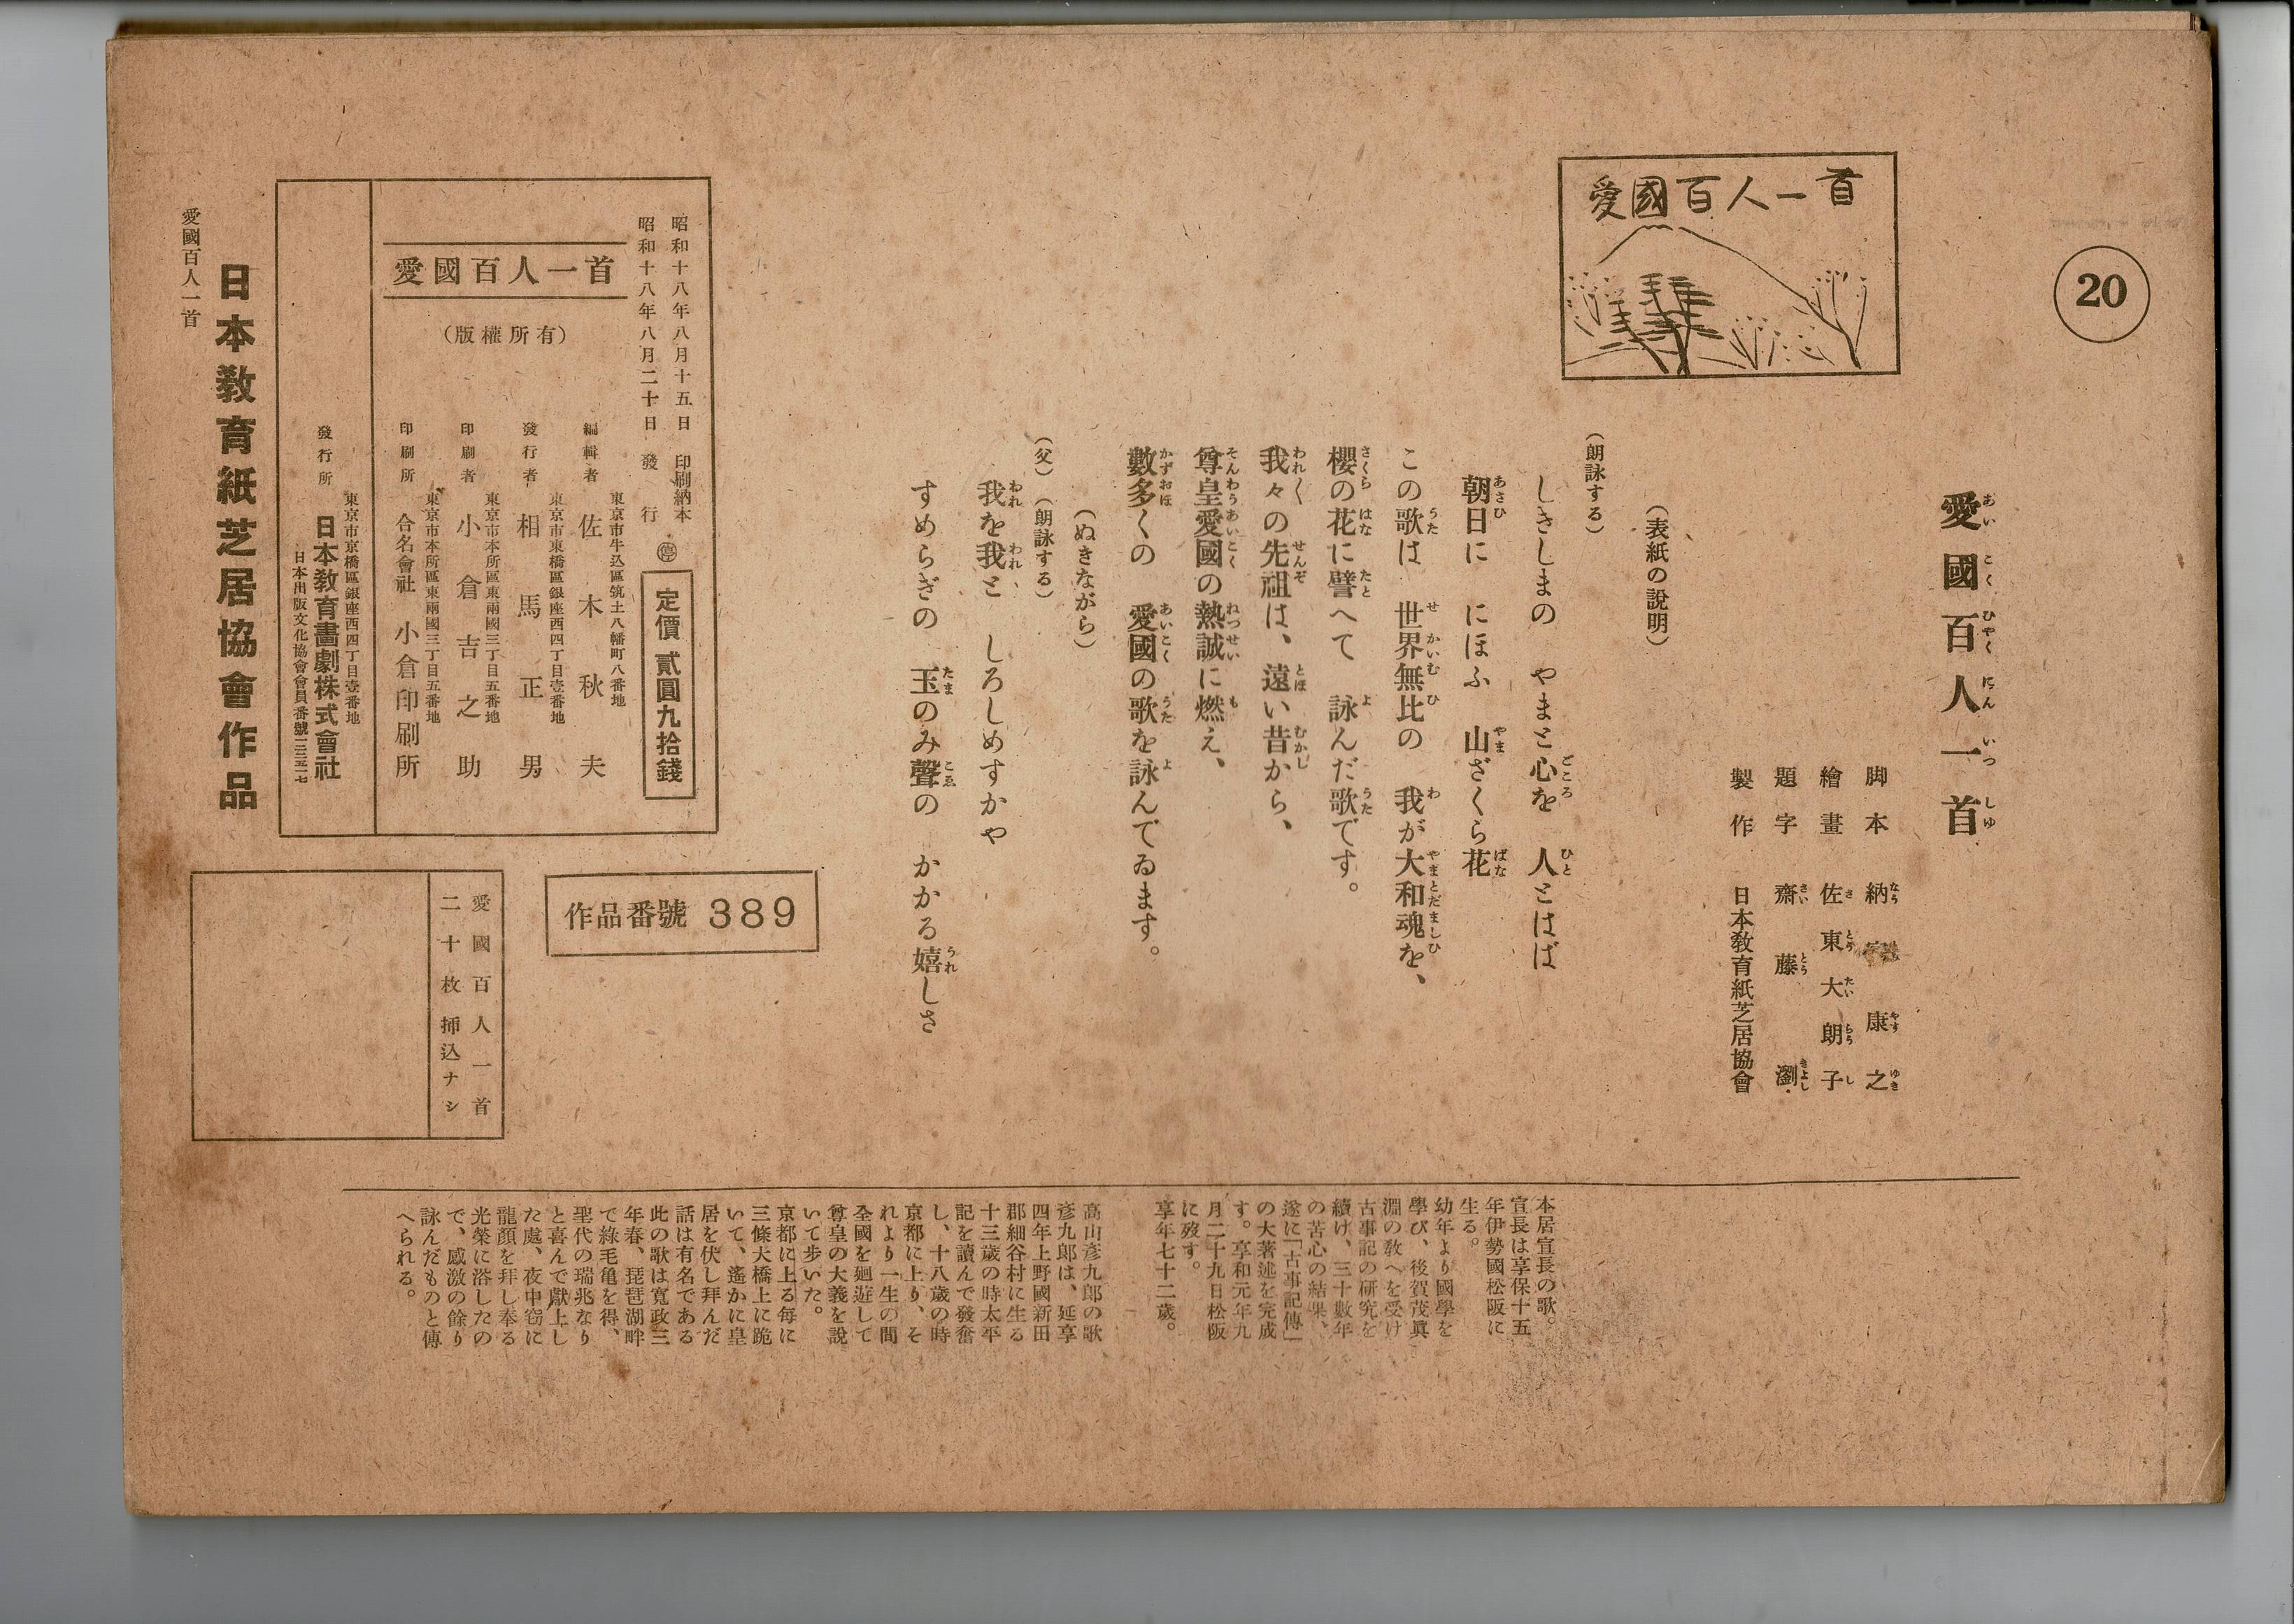 20
愛國百人一首
愛國百人一首
脚本 納 康之
繪畫 佐東大朗子
題字 齋藤瀏
製作 日本敎育紙芝居協會
（表紙の說明）
（朗詠する）
しきしまの やまと心を 人とはば
朝日に にほふ 山ざくら花
この歌は 世界無比の 我が大和魂を、
櫻の花に譬へて 詠んだ歌です。
我々の先祖は、遠い昔から、
尊皇愛國の熱誠に燃え、
數多くの 愛國の歌を詠んでゐます。
（ぬきながら）
（父）（朗詠する）
我を我と、しろしめすかや
すめらぎの 玉のみ聲の かかる嬉しさ
本居宣長の歌。
宣長は享保十五
年伊勢國松阪に
生る。
幼年より國學を
學び、後賀茂眞
淵の敎へを受け
古事記の硏究を
續け、三十數年
の苦心の結果、
遂に「古事記傳」
の大著述を完成
す。享和元年九
月二十九日松阪
に歿す。
享年七十二歲。
高山彥九郎の歌
彥九郎は、延享
四年上野國新田
郡細谷村に生る
十三歲の時太平
記を讀んで發奮
し、十八歲の時
京都に上り、そ
れより一生の間
全國を廻遊して
尊皇の大義を說
いて步いた。
京都に上る每に
三條大橋上に跪
いて、遙かに皇
居を伏し拜んだ
話は有名である
此の歌は寬政三
年春、琵琶湖畔
で綠毛亀を得、
聖代の瑞兆なり
と喜んで獻上し
た處、夜中窃に
龍顏を拜し奉る
光榮に浴したの
で、感激の餘り
詠んだものと傳
へられる。
作品番號 389
愛國百人一首
二十枚 挿込ナシ
昭和十八年八月十五日 印刷納本
昭和十八年八月二十日 發行
㊡停
定價 貳圓九拾錢
愛國百人一首
（版權所有）
東京市牛込區筑土八幡町八番地
編輯者 佐木秋夫
東京市京橋區銀座西四丁目壹番地
發行者 相馬正男
東京市本所區東兩國三丁目五番地
印刷者 小倉吉之助
東京市本所區東兩國三丁目五番地
印刷所 合名會社 小倉印刷所
東京市京橋區銀座西四丁目壹番地
發行所 日本敎育畫劇株式會社
日本出版文化協會會員番號一三五一七
日本敎育紙芝居協會作品
愛國百人一首